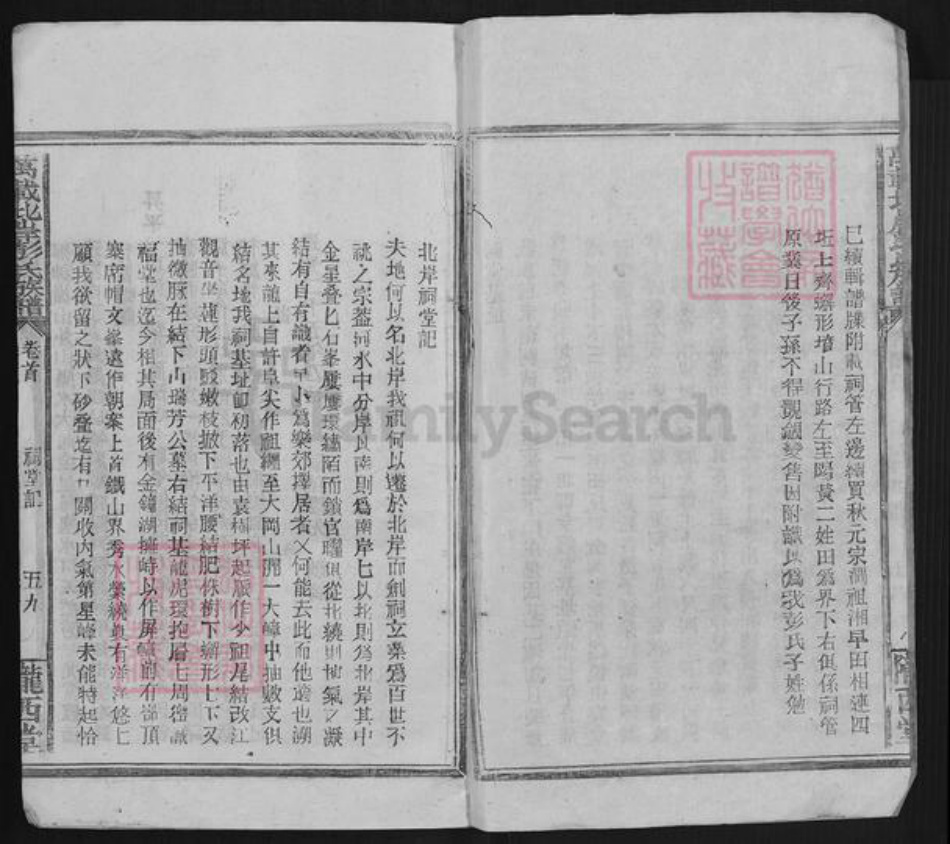 已續輯譜牒附載祠管左邊續買秋元宗潤祖湘早田相連四
坵上齊
形墇山行路左至陽黃二姓田為界下右俱係祠管
原業日後子孫不得覬覦變售因附識以為我彭氏子姓勉
北岸祠堂記
夫地何以名北岸我祖何以遷於北岸而創祠立業為百世不
祧之宗蓋河水中分岸以南則為南岸七以北則為北岸其中
金星疊匕石峯屢屢環繡陌而鎖官曜俱從北繞則地氣之凝
結有自有識者早卜為樂郊擇居者又何能去此而他適也溯
其來龍上自許阜尖作祖繼至大岡山開一大嶂中抽數支俱
結名地我祠基址即初落也由袁樹坪起脈作少祖尾結改江
觀音坐蓮形頭
嫩枝撒下平洋腰結肥株樹下
形匕下又
抽微脈在結下山瑞芳公墓右結祠基龍虎環抱眉七周密誠
福堂也迄今相其局面後有金鐘湖擁峙以作屏嶂前有
頂
寨席帽文峯遠作朝案上首鐵山界秀水縈繞奠有洋洋悠匕
顧我欲留之狀下砂疊迄有
關收內氣第星峰未能特起恰
萬載北岸彭氏族譜
卷首
祠堂記
五九
隴西堂
FamilySearch
譜學會
收藏